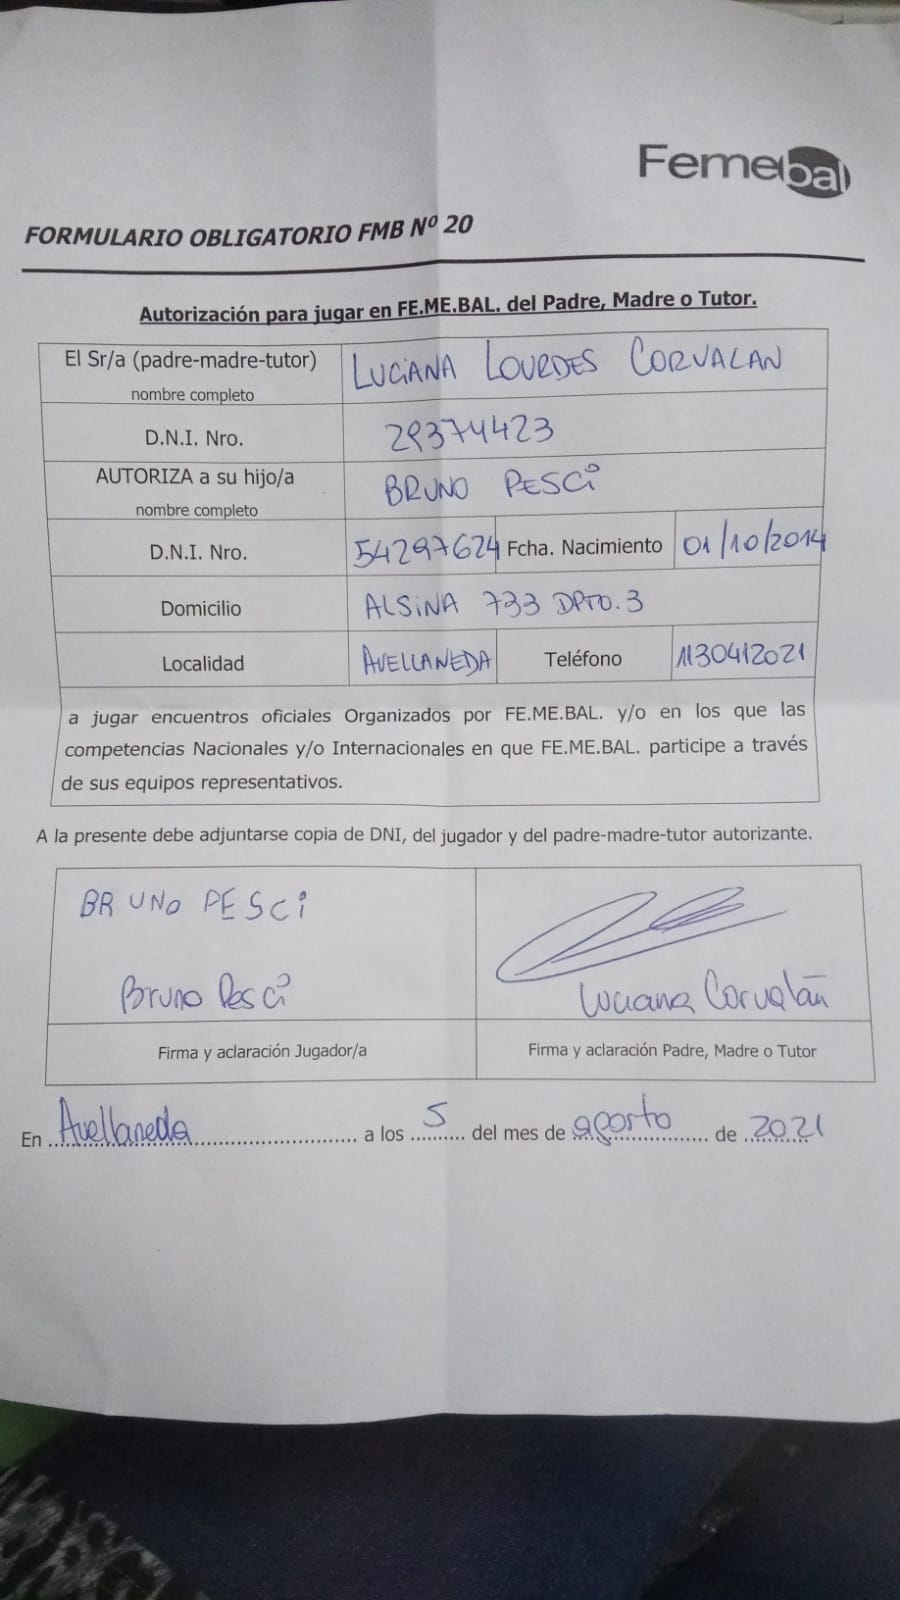 Femebal
FORMULARIO OBLIGATORIO FMB Nº 20
Autorización para jugar en FE.ME.BAL. del Padre, Madre o Tutor.
El Sr/a (padre-madre-tutor) LUCIANA LOURDES CORVALAN
nombre completo
D.N.I. Nro. 29374423
AUTORIZA a su hijo/a BRUNO PESCI
nombre completo
D.N.I. Nro. 54297624 Fcha. Nacimiento 01/10/2014
Domicilio ALSINA 733 DPTO. 3
Localidad AVELLANEDA Teléfono 1130412021
a jugar encuentros oficiales Organizados por FE.ME.BAL. y/o en los que las
competencias Nacionales y/o Internacionales en que FE.ME.BAL. participe a través
de sus equipos representativos.
A la presente debe adjuntarse copia de DNI, del jugador y del padre-madre-tutor autorizante.
BRUNO PESCI
Bruno Pesci Luciana Corvalán
Firma y aclaración Jugador/a Firma y aclaración Padre, Madre o Tutor
En Avellaneda a los 5 del mes de agosto de 2021